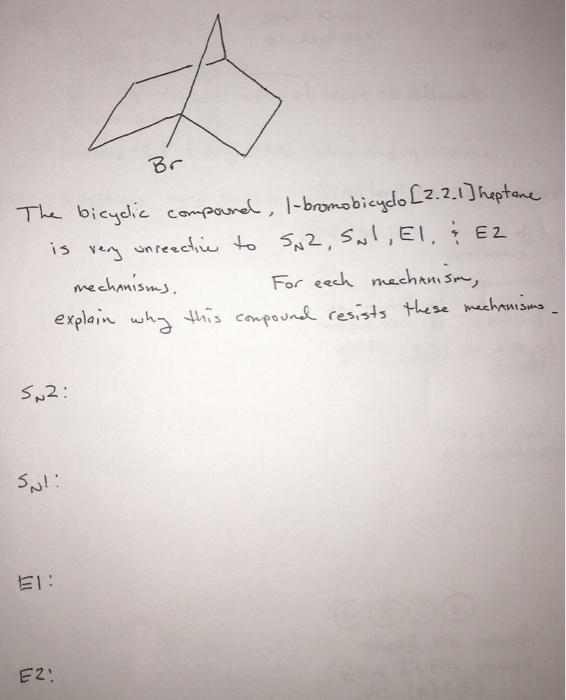 Br
The bicyclic compound, 1-bromobicyclo[2.2.1]heptane
is very unreactive to SN2, SN1, E1, & E2
mechanisms. For each mechanism,
explain why this compound resists these mechanisms.
SN2:
SN1:
E1:
E2: